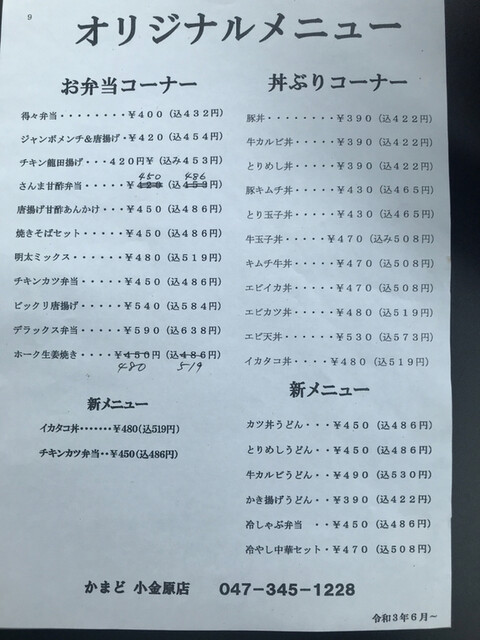 9
オリジナルメニュー
お弁当コーナー
得々弁当・・・・・・・・・¥400(込432円)
ジャンボメンチ&唐揚げ・¥420(込454円)
チキン龍田揚げ・・・420円¥(込み453円)
450 486
さんま甘酢弁当・・・・・¥420(込459円)
唐揚げ甘酢あんかけ・・・¥450(込486円)
焼きそばセット・・・・・¥450(込486円)
明太ミックス・・・・・・¥480(込519円)
チキンカツ弁当・・・・・¥450(込486円)
ビックリ唐揚げ・・・・・¥540(込584円)
デラックス弁当・・・・・¥590(込638円)
ホーク生姜焼き・・・・¥450円(込486円)
480 519
新メニュー
イカタコ丼・・・・・・・¥480(込519円)
チキンカツ弁当・・¥450(込486円)
丼ぶりコーナー
豚丼・・・・・・・・・¥390(込422円)
牛カルビ丼・・・・・・¥390(込422円)
とりめし丼・・・・・・¥390(込422円)
豚キムチ丼・・・・・・¥430(込465円)
とり玉子丼・・・・・・¥430(込465円)
牛玉子丼・・・・・・¥470(込み508円)
キムチ牛丼・・・・・・¥470(込508円)
エビイカ丼・・・・・・¥470(込508円)
エビカツ丼・・・・・・¥480(込519円)
エビ天丼・・・・・・・¥530(込573円)
イカタコ丼・・・・・¥480(込519円)
新メニュー
カツ丼うどん・・・¥450(込486円)
とりめしうどん・・¥450(込486円)
牛カルビうどん・・¥490(込530円)
かき揚げうどん・・¥390(込422円)
冷しゃぶ弁当 ・・¥450(込486円)
冷やし中華セット・¥470(込508円)
かまど 小金原店 047-345-1228
令和3年6月~